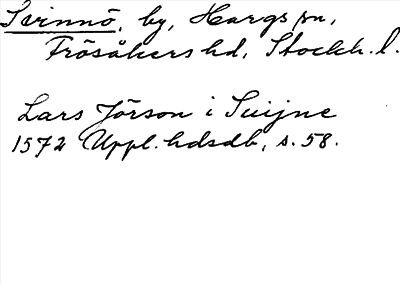 Svinnö, by, Hargs sn,
Frösåkers hd, Stockh. l.
Lars Jörson i Suijne
1572 Uppl. hdsdb, s. 58.